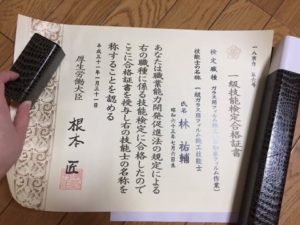 一級技能検定合格証書
検定職種 ガラス用フィルム施工
技能士の名称
一級ガラス用フィルム施工技能士
氏名 林 祐輔
昭和六十三年七月六日生
あなたは職業能力開発促進法の規定による
右の職種に係る技能検定に合格したので
ここに合格証書を授与し右の技能士の名称を
称することを認める
平成三十一年一月三十一日
厚生労働大臣 根本 匠